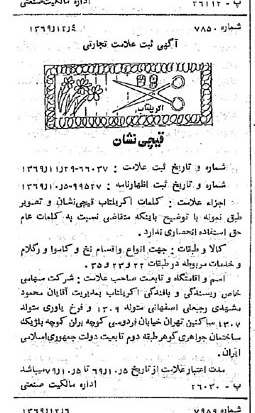 ب - ۲۶۱۱۲ اداره مالکیت صنعتی
شماره ۷۸۵۰ ۱۳۶۹/۱۲/۴
آگهی ثبت علامت تجارتی
اکریلتاب
قیچی نشان
شماره و تاریخ ثبت علامت : ۶۶۰۳۷-۱۳۶۹/۱۰/۲۹
شماره و تاریخ ثبت اظهارنامه : ۹۹۵۲۷-۱۳۶۹/۱۰/۵
اجزاء علامت : کلمات اکریلتاب قیچی‌نشان و تصویر
طبق نمونه با توضیح باینکه متقاضی نسبت به کلمات عام
حق استفاده انحصاری ندارد .
کالا و طبقات : جهت انواع واقسام نخ و کاموا و رگلام
و خدمات مربوطه در طبقات ۲۲ و ۲۳ و ۳۵ .
اسم و اقامتگاه و تابعیت صاحب علامت : شرکت سهامی
خاص ریسندگی و بافندگی اکریلتاب بمدیریت آقایان محمود
مشهدی رجبعلی اصفهانی متولد ۱۳۰۹ و فرخ یاوری متولد
۱۳۰۷ ساکنین تهران خیابان فردوسی کوچه برلن کوچه
ساختمان جواهری گوهر طبقه دوم تابعیت دولت جمهوری اسلامی
ایران .
مدت اعتبار علامت از تاریخ ۶۹/۱۰/۵ تا ۷۹/۱۰/۵ میباشد
ب - ۲۶۰۳۰ اداره مالکیت صنعتی
شماره ۷۹۵۹ ۱۳۶۹/۱۲/۶